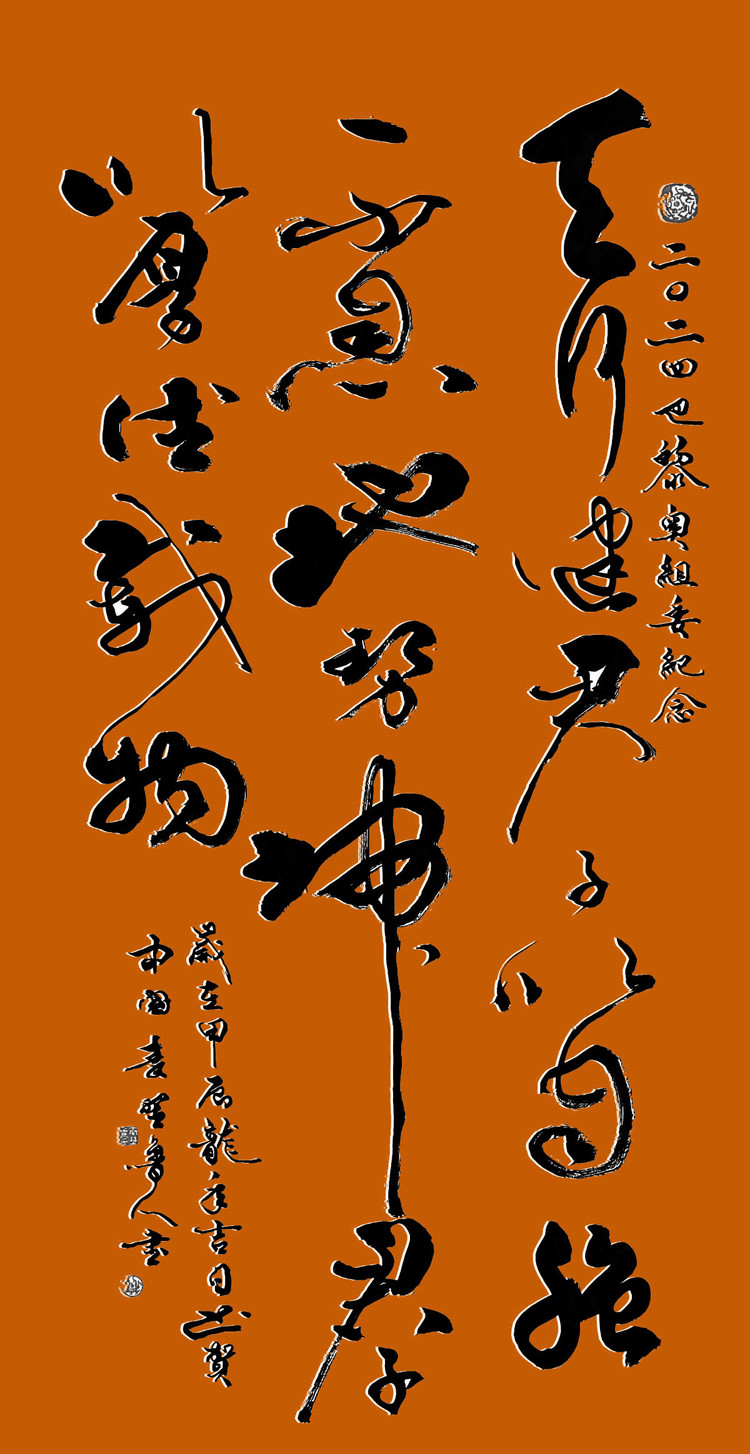 二〇二四巴黎奥組委紀念
天行健君子以自強
不息地势坤君子
以厚德載物
歲在甲辰龍年吉日賀
中國魯人書